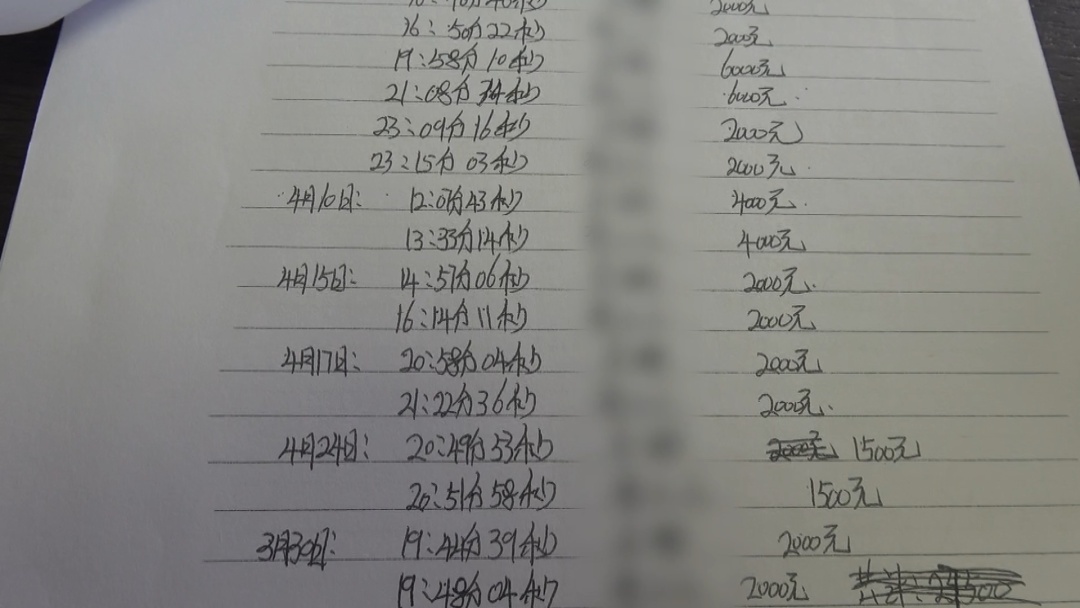 2000元
16:50分22秒 2000元
19:58分10秒 6000元
21:08分34秒 6000元
23:09分16秒 2000元
23:15分03秒 2000元
4月10日: 12:07分43秒 4000元
13:33分14秒 4000元
4月15日: 14:57分06秒 2000元
16:14分11秒 2000元
4月17日: 20:58分04秒 2000元
21:22分36秒 2000元
4月24日: 20:49分53秒 2000元 1500元
20:51分58秒 1500元
3月30日: 19:44分39秒 2000元
19:48分04秒 2000元